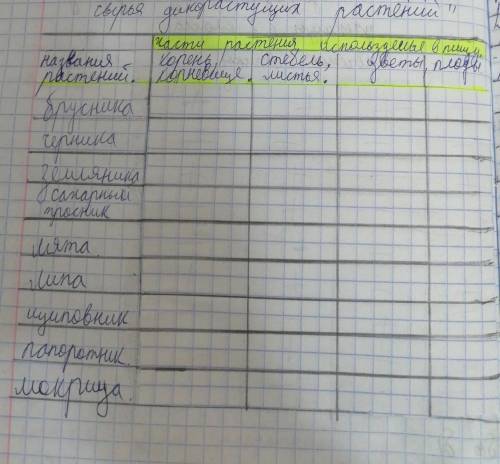 сырья дикорастущих растений"
части растения, используемые в пищу
названия растений. корень, корневище. стебель, листья. цветы, плоды
брусника
черника
земляника
сахарный тросник
мята
липа
шиповник
папоротник.
мокрица.